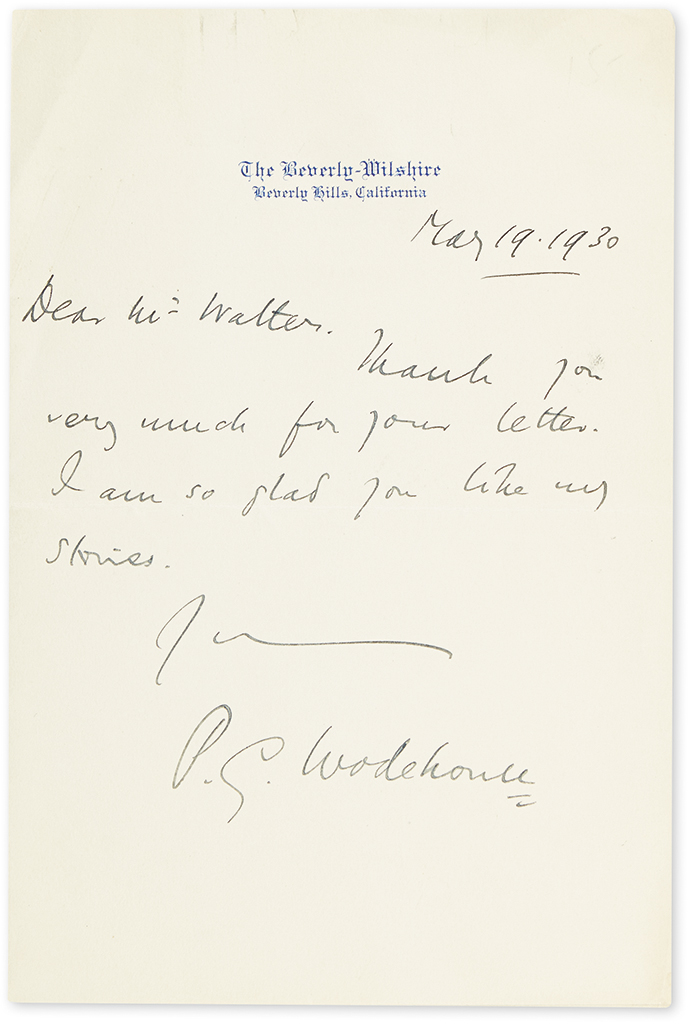 The Beverly-Wilshire
Beverly Hills, California
May 19. 1930
Dear Mr Walter.
Thank you
very much for your letter.
I am so glad you like my
stories.
P. G. Wodehouse